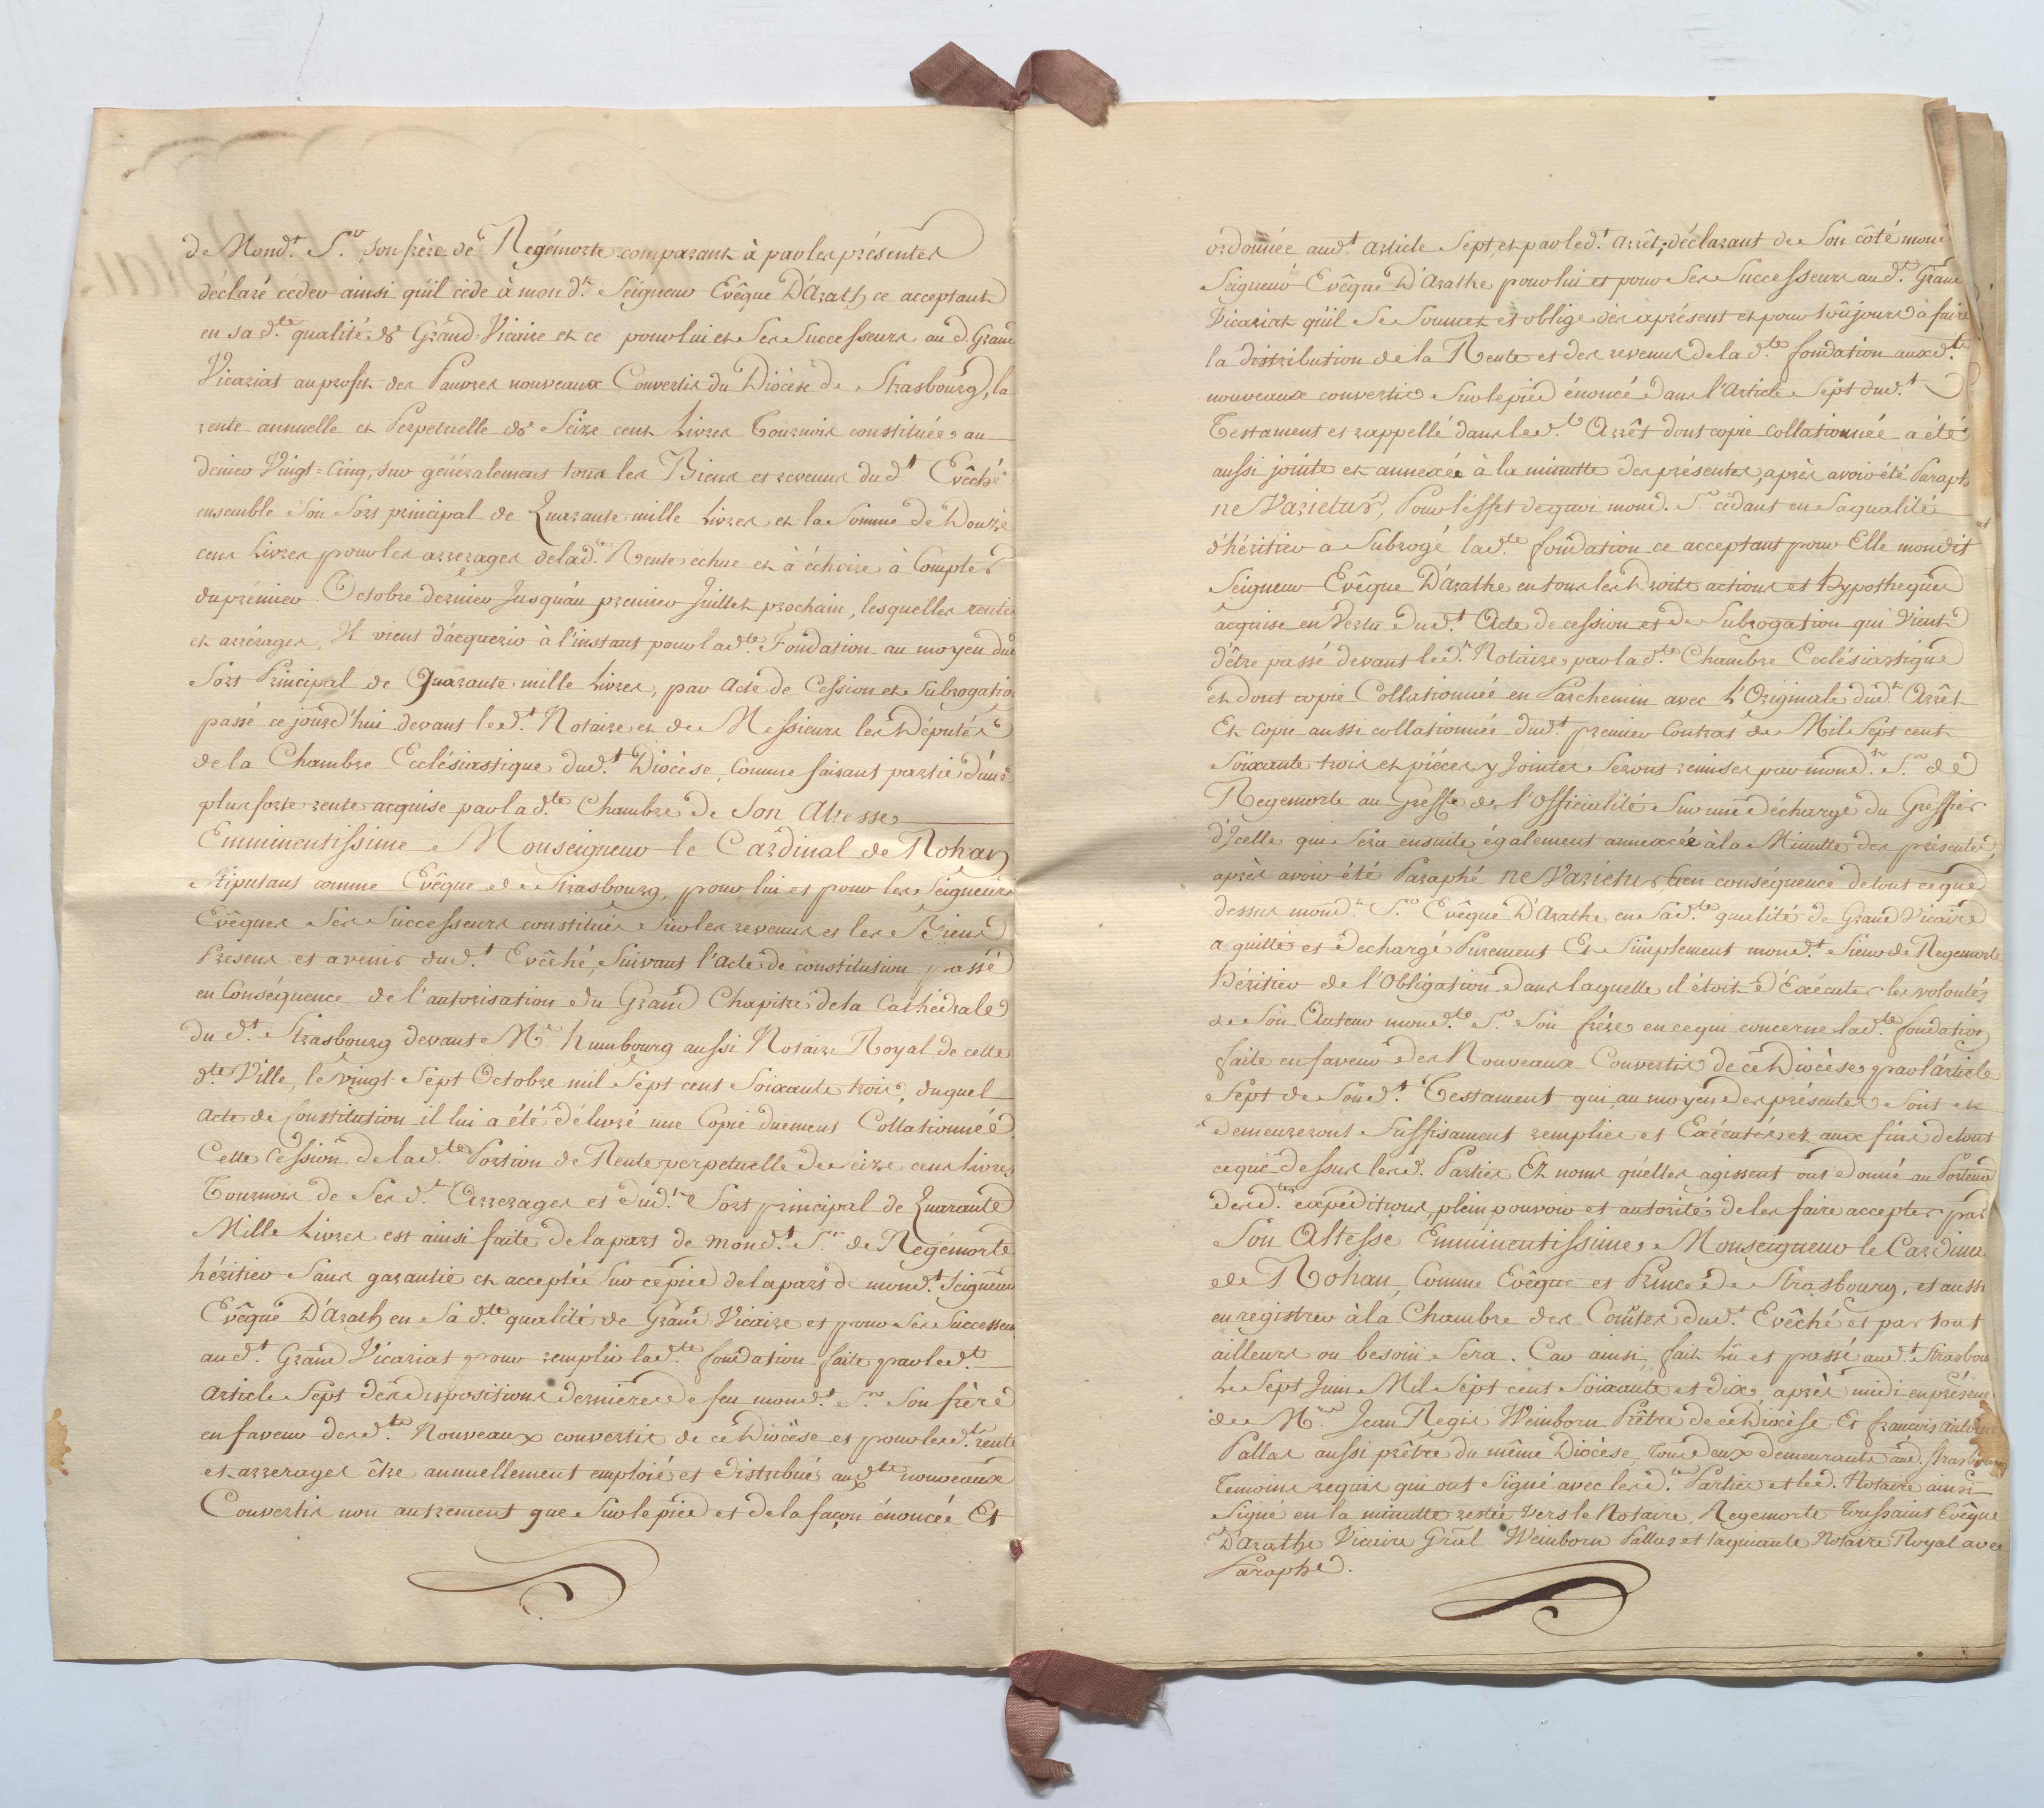 de Mond.t S.r son frère de Regémorte comparant à par les présentes
déclaré céder ainsi qu'il cède à mon d.t Seigneur Evêque D'Arath, ce acceptant
en sa d.te qualité de Grand-Vicaire et ce pour lui et Ses Successeurs au d. Grand
Vicariat au profit des Pauvres nouveaux Convertis du Diocèse de Strasbourg, la
rente annuelle et Perpetuelle de Seize cent Livres Tournois constituée au
denier Vingt=Cinq, sur généralement tous les Biens et revenus dud.t Evêché
ensemble son Sort principal de Quarante mille Livres et la Somme de Douze
cent Livres pour les arrerages de lad. Rente échue et à échoire à Compter
du prémier Octobre dernier Jusqu'au premier Juillet prochain, lesquelles rente
et arrérages, Il vient d'acquerir à l'instant pour lad.te Fondation au moyen du
Sort Principal de Quarante mille Livres, par Acte de Cession et Subrogation
passé ce jourd'hui devant led.t Notaire et de Messieurs les Députés
de la Chambre Ecclésiastique dud.t Diocèse, Comme faisant partie d'une
plus forte rente acquise par lad.te Chambre de Son Altesse
Emminentissime Monseigneur le Cardinal de Rohan
stipulant comme Evêque de Strasbourg, pour lui et pour les Seigneurs
Evêques Ses Successeurs constituée sur les revenus et les Biens
Presens et avenir dud.t Evêché, Suivant l'Acte de constitution passé
en Conséquence de l'autorisation du Grand Chapitre de la Cathédrale
du d.t Strasbourg devant M.e Humbourg aussi Notaire Royal de cette
d.te Ville, le Vingt-Sept Octobre mil Sept cent Soixante trois, duquel
Acte de Constitution il lui a été délivré une Copie duement Collationnée
Cette Cession de lad.te Portion de Rente perpetuelle de Seize cent Livres
Tournois de Ses d.ts Arrerages et dud.t Sort principal de Quarante
Mille Livres est ainsi faite de la part de mond.t S.r de Regémorte
héritier Sans garantie et acceptée Sur ce pied de la part de mond.t Seigneur
Evêque D'Arath en Sa d.te qualité de Grand Vicaire et pour Ses Successeurs
au d.t Grand Vicariat pour remplir lad.te fondation faite par led.t
Article Sept des dispositions dernieres de feu mond.t S.r Son frère
en faveur des d.ts Nouveaux convertis de ce Diocèse et pour lesd.ts rente
et arrerages être annuellement emploié et distribué aux d.ts nouveaux
Convertis non autrement que Sur le pied et de la façon énoncée Et
ordonnée aud.t article Sept, et par led.t Arrêt; déclarant de Son côté mond
Seigneur Evêque D'Arathe pour lui et pour Ses Successeurs au d.t Grand
Vicariat qu'il Se Soumet et oblige dès aprésent et pour toûjours à faire
la distribution de la Rente et des revenus de la d.te fondation aux d.ts
nouveaux convertis Sur le pied énoncé dans l'Article Sept dud.t
Testament et rappellé dans led.t Arrêt dont copie collationnée a été
aussi jointe et annexée à la minutte des présentes, après avoir été Paraphé
ne Varietur, Pour l'effet de quoi mond. S.r cédant en Sa qualité
d'héritier a Subrogé lad.te fondation ce acceptant pour Elle mondit
Seigneur Evêque D'Arathe en tous les Droits actions et hypotheques
acquise en Vertu dud.t Acte de cession et de Subrogation qui Vient
d'être passé devant led.t Notaire par la d.te Chambre Ecclésiastique
et dont copie Collationnée en Parchemin avec l'Originale dud.t Arrêt
Et Copie aussi collationnée dud.t premier Contrat de Mil Sept cent
Soixante trois et pièces y Jointes Seront remises par mond.t S.r de
Regemorte au Greffe de l'Officialité Sur une décharge du Greffier
d'Icelle qui Sera ensuite également annexée à la Minutte des présentes,
après avoir été Paraphé ne Varietur, & en conséquence de tout ce que
dessus mond.t S.r Evêque D'Arathe en Sad.te qualité de Grand Vicaire
a quitté et dechargé Purement Et Simplement mond.t Sieur de Regemorte
Héritier de l'Obligation dans laquelle il étoit d'Exécuter les volontés
de Son Auteur mond.t S.r Son frère en ce qui concerne lad.te fondation
faite en faveur des Nouveaux Convertis de ce Diocèse par l'article
Sept de Sond.t Testament qui au moyen des présentes Sont et
demeureront Suffisament remplies et Exécutées et aux fins de tout
ce que dessus lesd. Parties Ez noms qu'elles agissent ont donné au Porteur
desd.tes expéditions, plein pouvoir et autorité de les faire accepter par
Son Altesse Emminentissime Monseigneur le Cardinal
de Rohan, Comme Evêque et Prince de Strasbourg, et aussi
enregistrer à la Chambre des Comtes dud.t Evêché et par tout
ailleurs ou besoin Sera. Car ainsi fait lû et passé aud.t Strasbourg
Le Sept Juin Mil Sept cent Soixante et dix après midi en présence
de M.rs Jean Regis Weinborn Prêtre de ce Diocèse Et francois Antoine
Pallas aussi prêtre du même Diocèse, tous deux demeurants aud. Strasbourg
Temoins requis qui ont Signé avec lesd.tes Parties et led. Notaire ainsi
Signé en la minutte restée Vers le Notaire. Regemorte Toussaint Evêque
D'Arathe Vicaire Grâl Weinborn Pallas et Laquiante Notaire Royal avec
Paraphe.